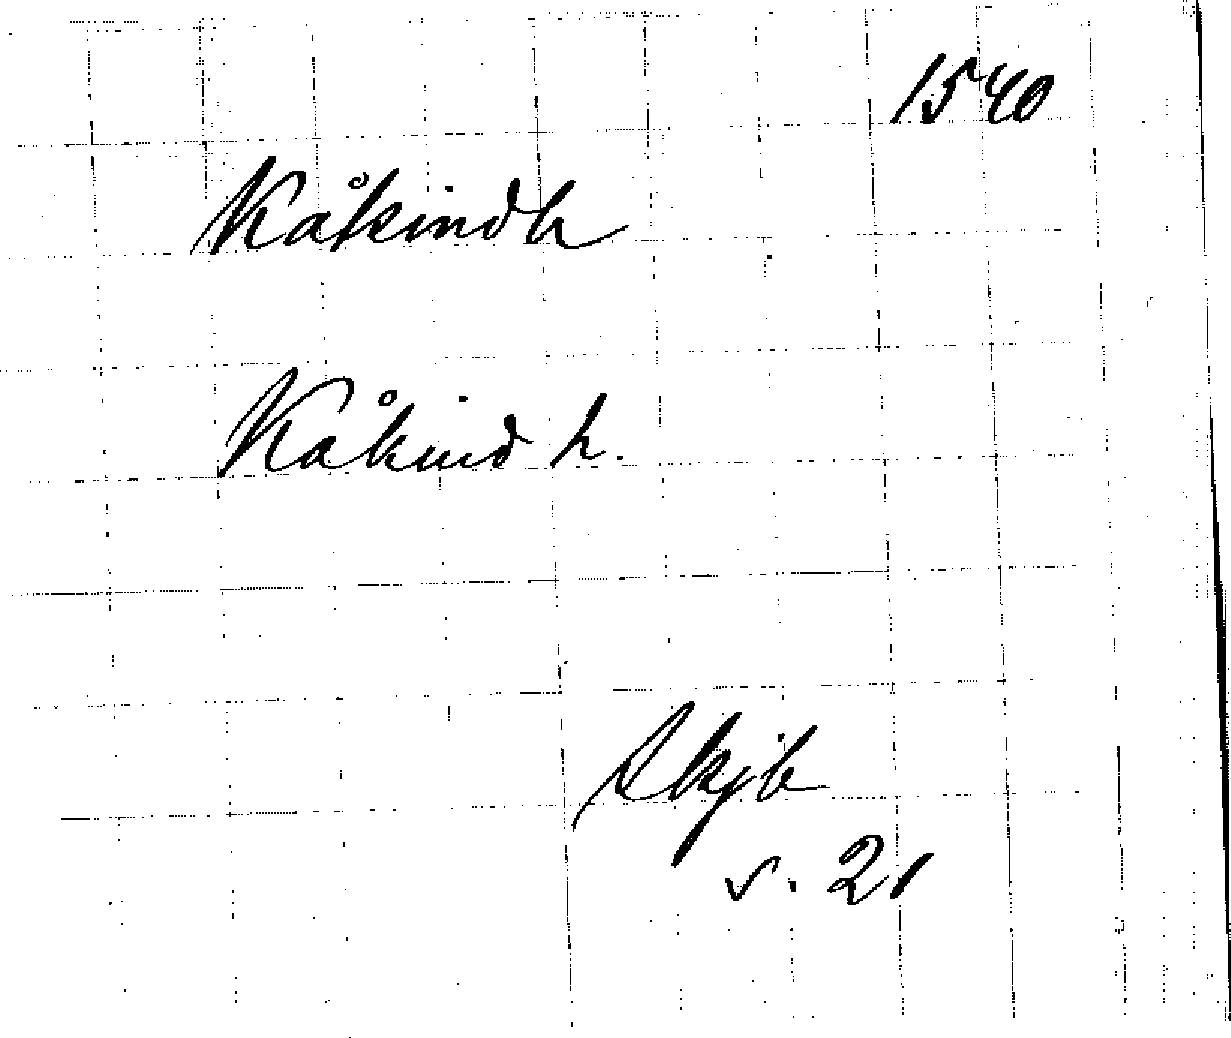 1540
Kåkindh
Kåkind h.
Skjb
s. 21